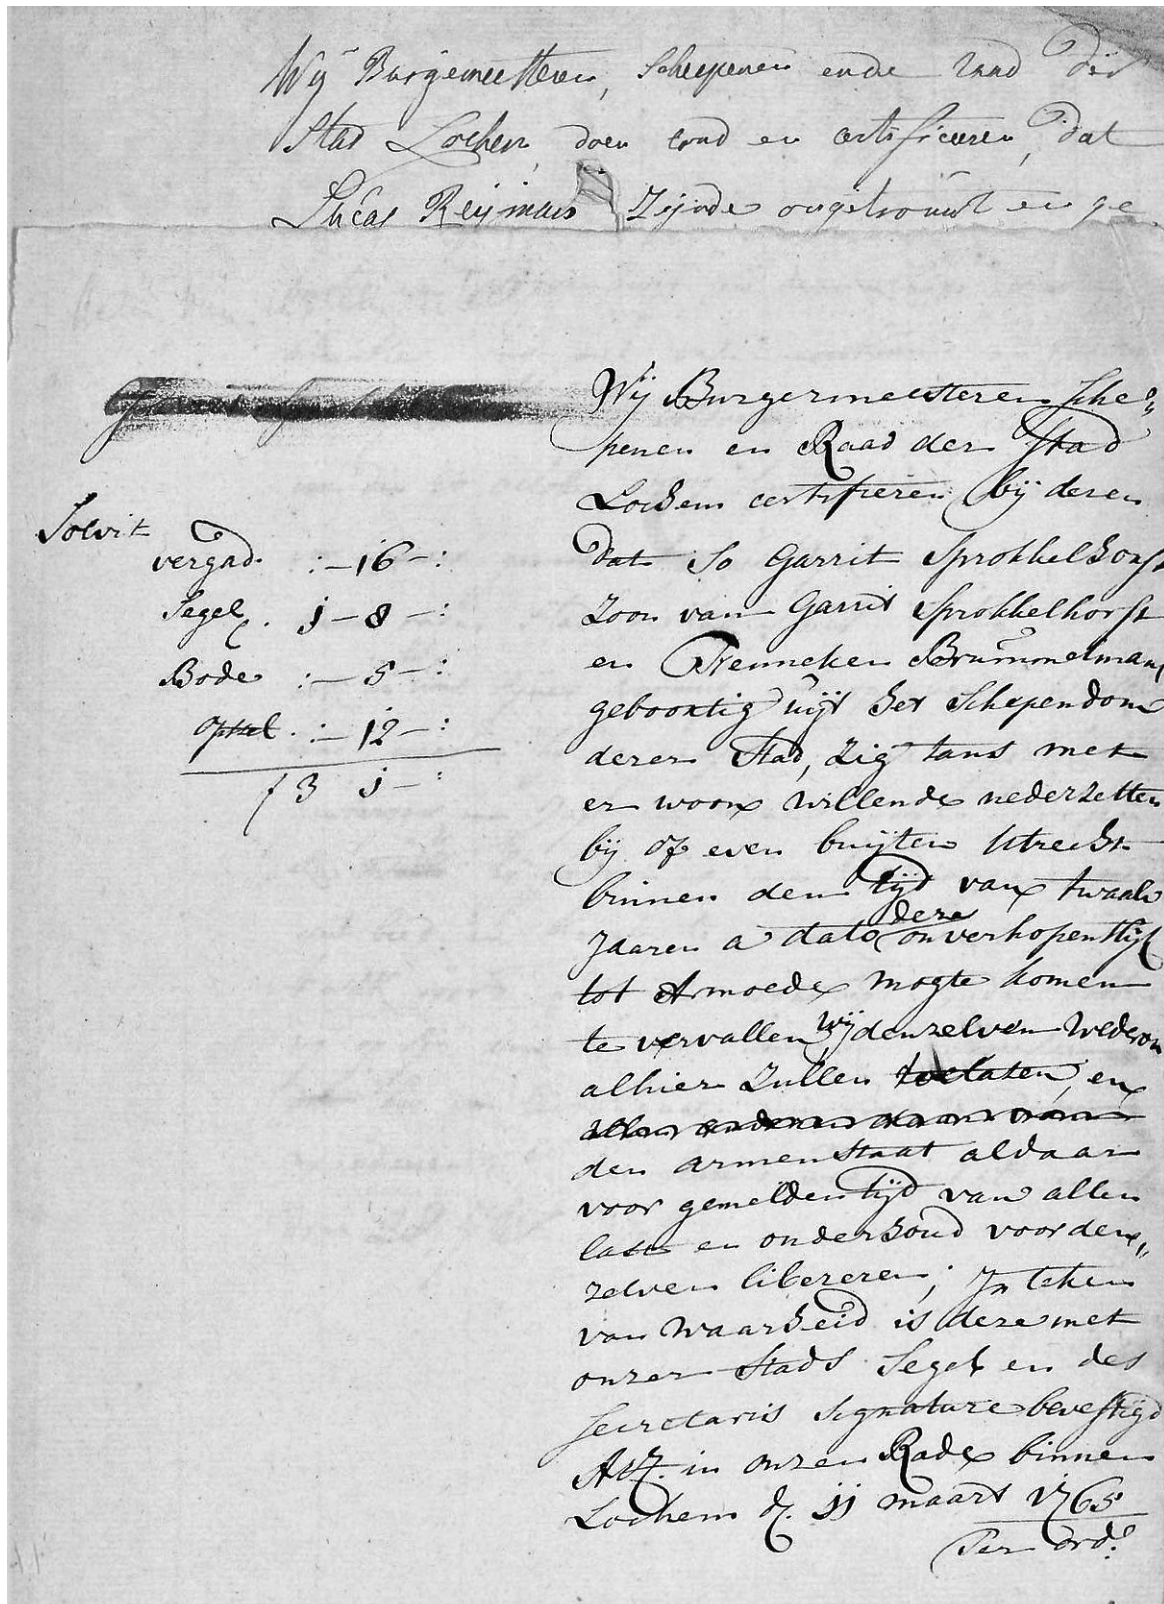 Wij Burgemeesteren, Scheepenen ende Raad der
Stad Lochem, doen cond en certificeeren, dat
Lucas Reijmais Zijnde ongetrouwt en ge
Solvit
vergad. :-16-:
Segel. 1-8-:
Bode :-5-:
opstel. :-12-:
f 3 1-:
Wij Burgermeesteren Sche„
penen en Raad der Stad
Lochem certifieren bij deren
dat So Garrit Sprokkelhorst
Zoon van Garrit Sprokkelhorst
en Trenneken Brummelman,
geboortig uijt het Schependom
derer Stad, Zig tans met
er woon willende nederzetten
bij of even buijten Utrecht
binnen den tijd van twaalv
Jaaren a dato deze onverhopentlijk
tot Armoede mogte komen
te vervallen, wij denzelven wederom
alhier Zullen toelaten, en
den armenstaat aldaar
voor gemelden tijd van allen
last en onderhoud voor den„
zelven libereren; In teken
van waarheid is deze met
onzer Stads Segel en des
Secretaris Signature bevestigd
Act. in onzen Rade binnen
Lochem d. 11 maart 1765
Per ord.